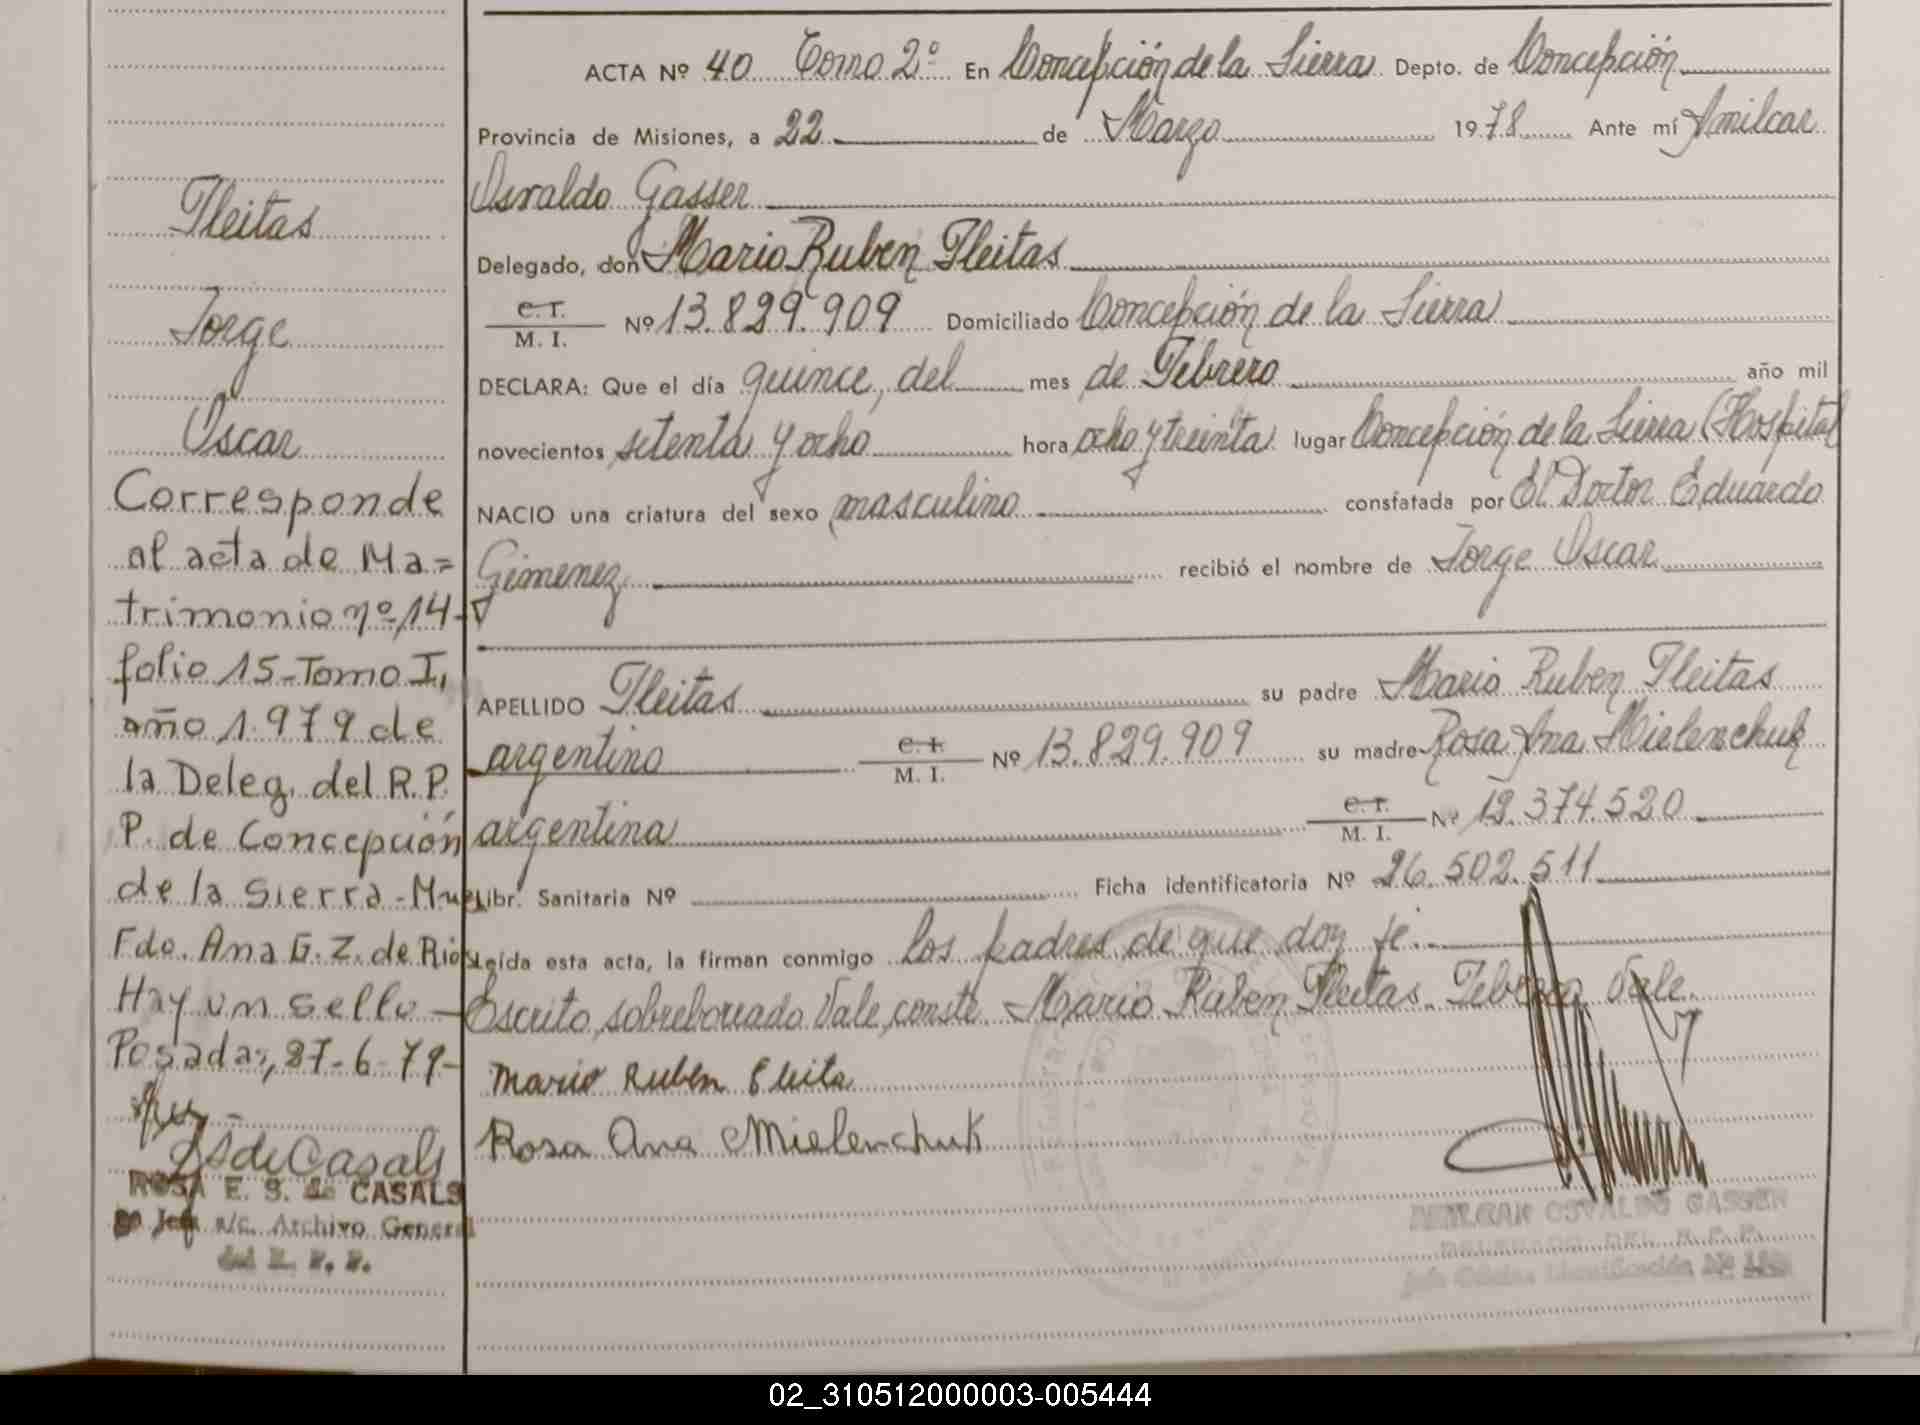 Fleitas
Jorge
Oscar
Corresponde
al acta de Ma=
trimonio nº 14-
folio 15-Tomo I,
año 1.979 de
la Deleg. del R.P.
P. de Concepción
de la Sierra-Mnes
Fdo. Ana G. Z. de Rios
Hay un sello —
Posadas, 27-6-79-
ESdeCasals
ROSA E. S. de CASALS
Jefe a/c. Archivo General
del R. P. P.
ACTA Nº 40 Tomo 2º En Concepción de la Sierra Depto. de Concepción
Provincia de Misiones, a 22 de Marzo 1978 Ante mí Amilcar
Osvaldo Gasser
Delegado, don Mario Ruben Fleitas
C. I.
M. I. Nº 13.829.909 Domiciliado Concepción de la Sierra
DECLARA: Que el día quince, del mes de Febrero año mil
novecientos setenta y ocho hora ocho y treinta lugar Concepción de la Sierra (Hospital
NACIO una criatura del sexo masculino constatada por El Doctor Eduardo
Gimenez recibió el nombre de Jorge Oscar
APELLIDO Fleitas su padre Mario Ruben Fleitas
argentino C. I.
M. I. Nº 13.829.909 su madre Rosa Ana Mielenchuk
argentina C. I.
M. I. Nº 12.374.520
Libr. Sanitaria Nº Ficha identificatoria Nº 26.502.511
Leída esta acta, la firman conmigo Los padres de que doy fe.
Escrito sobreborreado Vale, conste. Mario Ruben Fleitas. Febrero Vale.
Mario Ruben Fleita
Rosa Ana Mielenchuk
AMILCAR OSVALDO GASSER
DELEGADO DEL R.P.P.
Jefe Oficina Identificación Nº
02_310512000003-005444